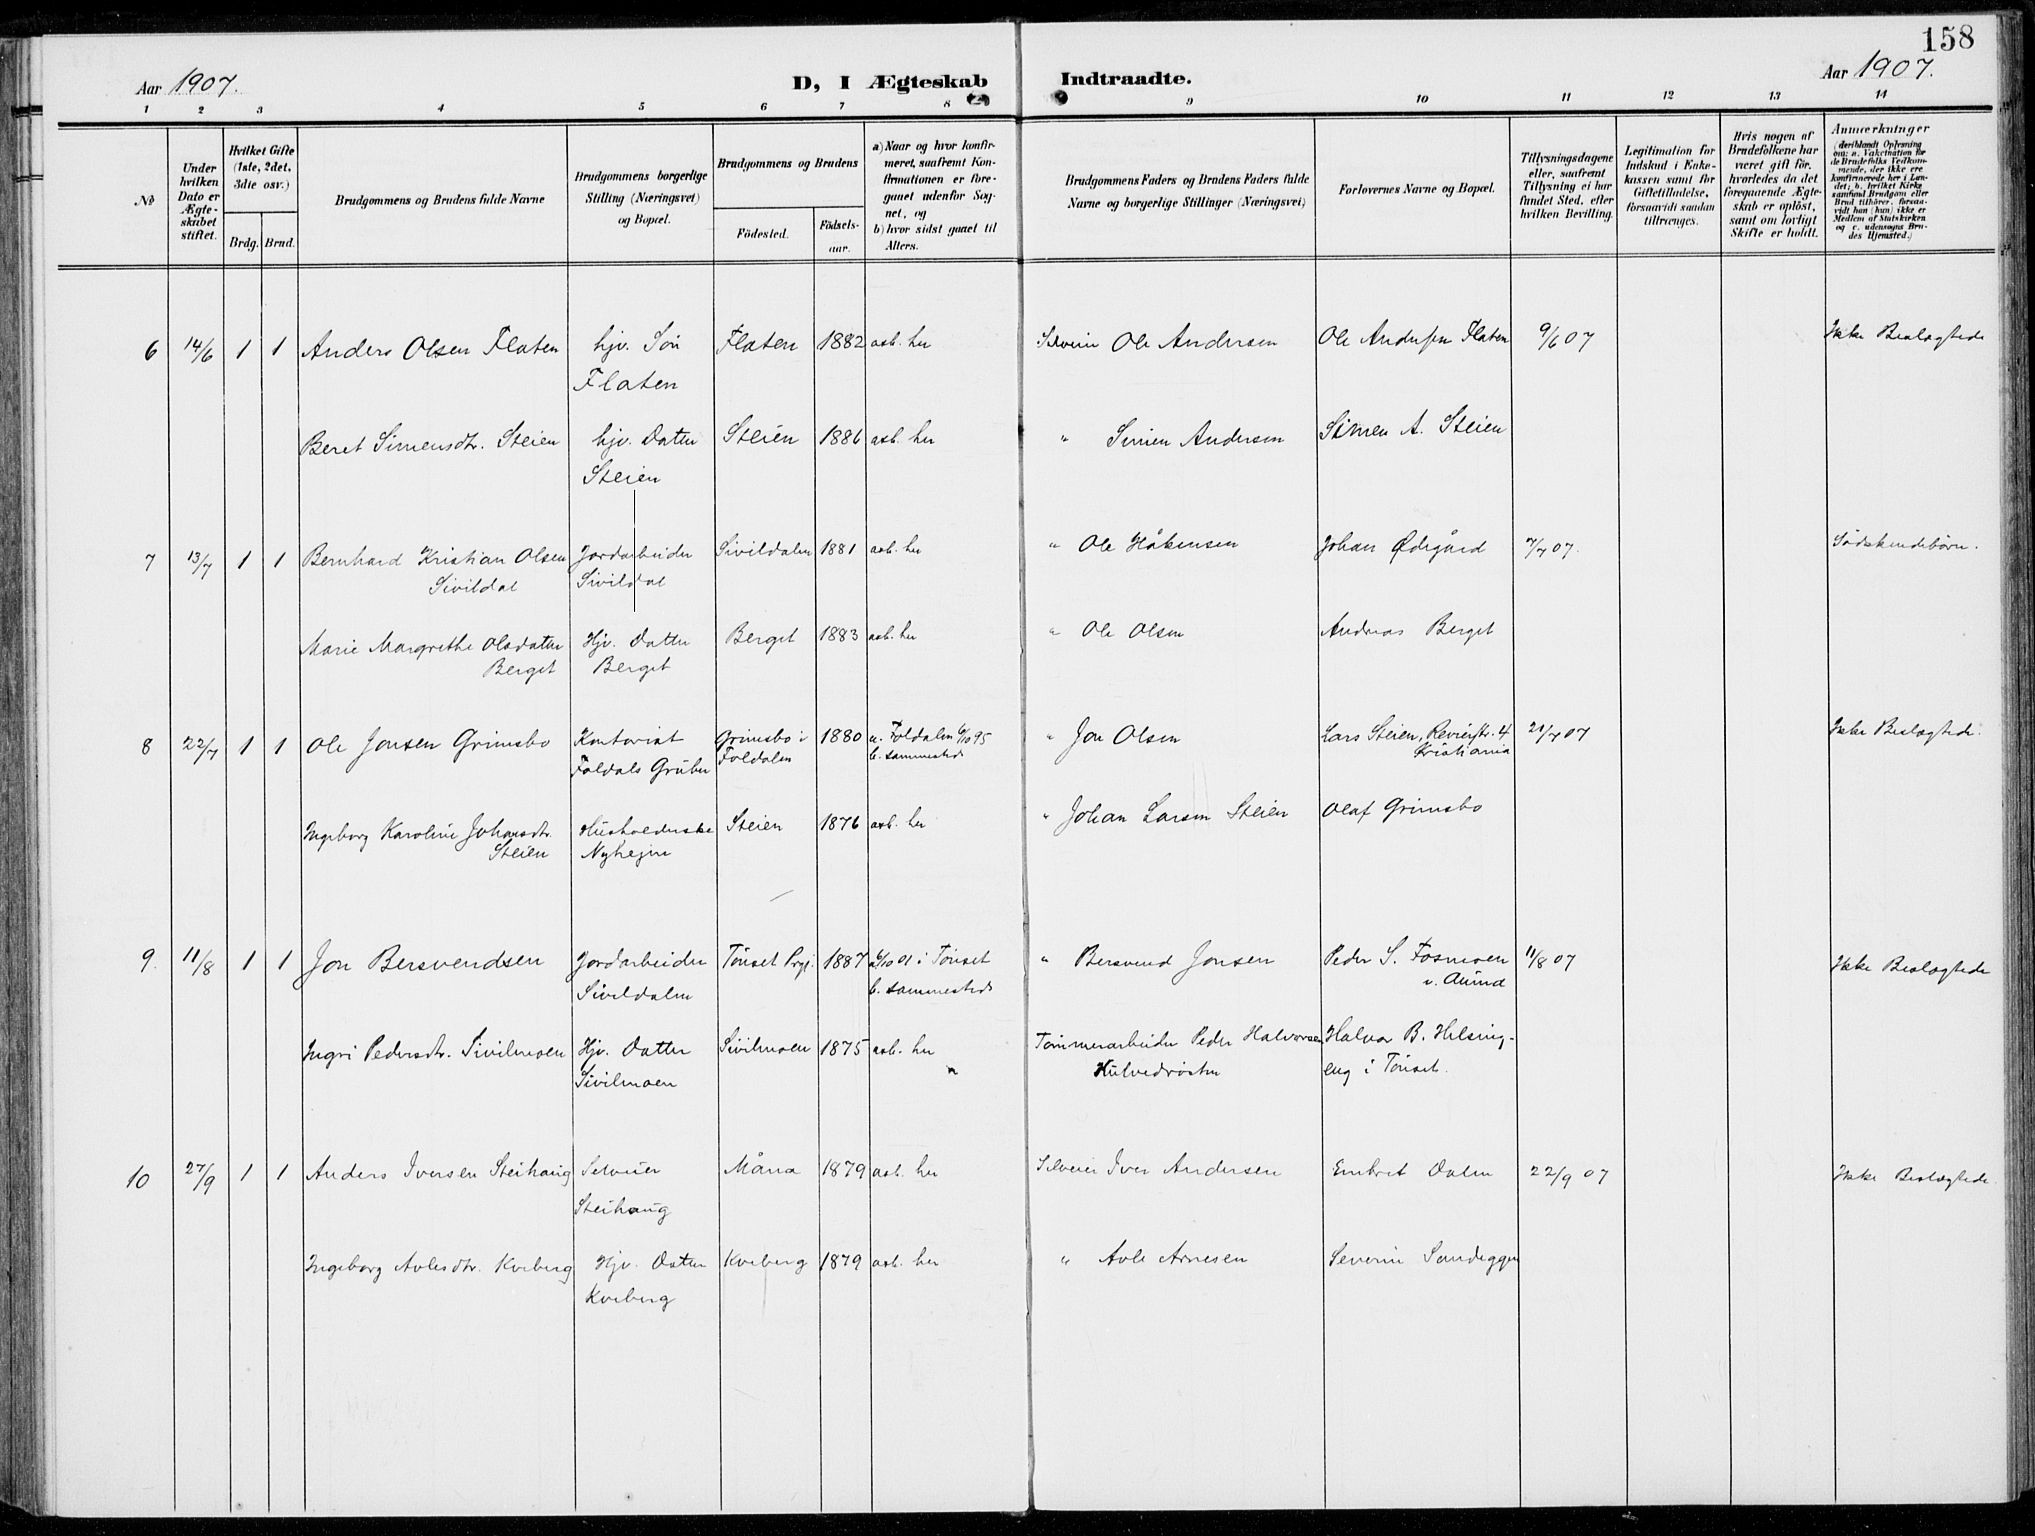 158
Aar 1907.
D, I Ægteskab Indtraadte.
Aar 1907.
1 2 3 4 5 6 7 8 9 10 11 12 13 14
No
Under hvilken Dato er Ægteskabet stiftet.
Hvilket Gifte (1ste, 2det, 3die osv.)
Brdg. Brud.
Brudgommens og Brudens fulde Navne
Brudgommens borgerlige Stilling (Næringsvei) og Bopæl.
Brudgommens og Brudens
Födested.
Födsels-aar.
a) Naar og hvor konfirmeret, saafremt Konfirmationen er foregaaet udenfor Sognet, og
b) hvor sidst gaaet til Alters.
Brudgommens Faders og Brudens Faders fulde Navne og borgerlige Stillinger (Næringsvei)
Forlovernes Navne og Bopæl.
Tillysningsdagene eller, saafremt Tillysning ei har fundet Sted, efter hvilken Bevilling.
Legitimation for Indskud i Enkekassen samt for Giftetilladelse, forsaavidt saadan tiltrænges.
Hvis nogen af Brudefolkene har været gift för, hvorledes da det foregaaende Ægteskab er oplöst, samt om lovligt Skifte er holdt.
Anmærkninger
(deriblandt Oplysning om: a. Vakcination for de Brudefolks Vedkommende, der ikke ere konfirmerede her i Landet; b. hvilket Kirkesamfund Brudgom eller Brud tilhörer, forsaavidt han (hun) ikke er Medlem af Statskirken og c. udensogns Brudes Hjemsted.)
6 14/6 1 1 Anders Olsen Flaten hjv. Søn Flaten 1882 aab. her Selveier Ole Andersen Ole Andersen Flaten 9/6 07 Ikke Beslægtede
Flaten
Beret Simensdtr. Steien hjv. Datter Steien 1886 aab. her " Simen Andersen Simen A. Steien
Steien
7 13/7 1 1 Bernhard Kristian Olsen Jordarbeider Sivildalen 1881 aab. her " Ole Håkensen Johan Ødegård 7/7 07. Södskendebörn.
Sivildal Sivildal
Marie Margrethe Olsdatter Hjv. Datter Berget 1883 aab. her " Ole Olsen Andreas Berget
Berget Berget
8 22/7 1 1 Ole Jonsen Grimsbo Kontorist Grimsbo i 1880 a. Foldalen 6/10 95 " Jon Olsen Lars Steien, Revierstr. 4 21/7 07 Ikke Beslægtede.
Foldals Gruber Foldalen b. sammesteds Kristiania
Ingeborg Karoline Johansdtr. Husholderske Steien 1876 aab. her " Johan Larsen Steien Olaf Grimsbo
Steien Nyhejm
9. 11/8 1 1 Jon Bersvendsen Jordarbeider Tönset Prgj. 1887 a 6/10 01 i Tönset " Bersvend Jonsen Peder S. Fosmoen 11/8 07 Ikke Beslægtede
Sivildalen b. sammesteds v. Auma
Ingri Pedersdtr. Sivilmoen Hjv. Datter Sivilmoen 1875 aab. her Tømmerarbeider Peder Halvorsen Halvor B. Helsing-
Sivilmoen Kulvedrösten eng i Tönset.
10 27/9 1 1 Anders Iversen Steihaug Selveier Måna 1879 aab. her Selveier Iver Andersen Embret Dalen 22/9 07 Ikke Beslægtede.
Steihaug
Ingeborg Avlesdtr. Kveberg Hjv. Datter Kveberg 1879 aab. her " Avle Arnesen Severin Sandeggen
Kveberg